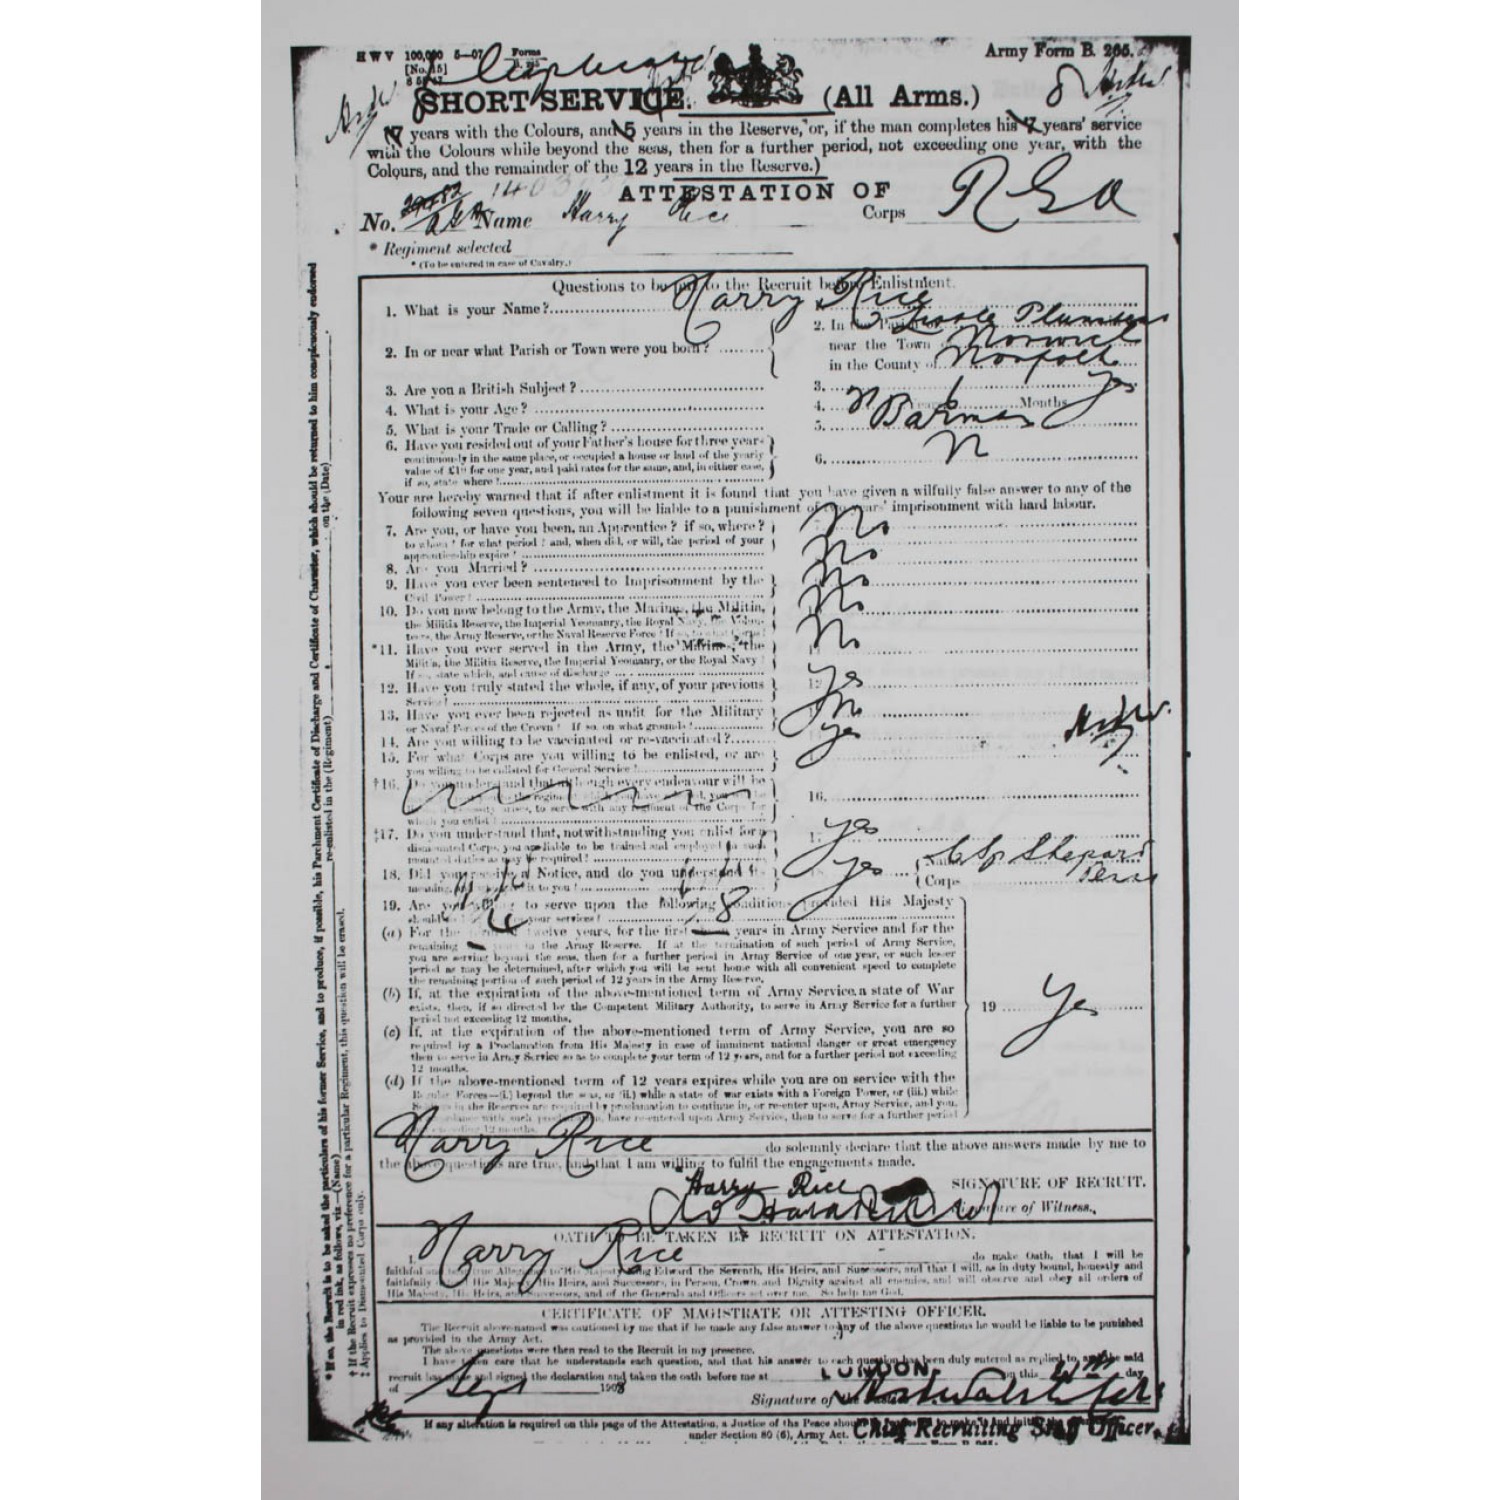 H W V 100,000 5—07 Forms
[No. 15] B. 265
Army Form B. 265.
SHORT SERVICE. (All Arms.) 8
7 years with the Colours, and 5 years in the Reserve, or, if the man completes his 7 years' service
with the Colours while beyond the seas, then for a further period, not exceeding one year, with the
Colours, and the remainder of the 12 years in the Reserve.)
ATTESTATION OF
No. Name Harry Rice Corps R G A
* Regiment selected
* (To be entered in case of Cavalry.)
Questions to be put to the Recruit before Enlistment.
1. What is your Name? Harry Rice
2. In or near what Parish or Town were you born?
2. In the Parish of
near the Town Norwich
in the County of Norfolk
3. Are you a British Subject? 3. Yes
4. What is your Age? 4. Years Months
5. What is your Trade or Calling? 5. Barman
6. Have you resided out of your Father's house for three years
continuously in the same place, or occupied a house or land of the yearly
value of £10 for one year, and paid rates for the same, and, in either case,
if so, state where?
6. N
Your are hereby warned that if after enlistment it is found that you have given a wilfully false answer to any of the
following seven questions, you will be liable to a punishment of two years' imprisonment with hard labour.
7. Are you, or have you been, an Apprentice? if so, where?
to whom? for what period? and, when did, or will, the period of your
apprenticeship expire?
No
8. Are you Married? No
9. Have you ever been sentenced to Imprisonment by the
Civil Power?
No
10. Do you now belong to the Army, the Marines, the Militia,
the Militia Reserve, the Imperial Yeomanry, the Royal Navy, the Volun-
teers, the Army Reserve, or the Naval Reserve Force? If so, to what Corps?
No
*11. Have you ever served in the Army, the Marines, the
Militia, the Militia Reserve, the Imperial Yeomanry, or the Royal Navy?
If so, state which, and cause of discharge
No
12. Have you truly stated the whole, if any, of your previous
Service?
12. Yes
13. Have you ever been rejected as unfit for the Military
or Naval Forces of the Crown? If so, on what grounds?
No
14. Are you willing to be vaccinated or re-vaccinated? Yes
15. For what Corps are you willing to be enlisted, or are
you willing to be enlisted for General Service?
†16. Do you understand that although every endeavour will be
16.
which you enlist?
‡17. Do you understand that, notwithstanding you enlist for a
dismounted Corps, you are liable to be trained and employed in such
mounted duties as may be required?
17. Yes
18. Did you receive a Notice, and do you understand its
meaning, and who gave it to you?
Yes { Name Shepard
{ Corps
19. Are you willing to serve upon the following conditions provided His Majesty
should so require your services?
(a) For the term of twelve years, for the first 8 years in Army Service and for the
remaining 4 years in the Army Reserve. If at the termination of such period of Army Service,
you are serving beyond the seas, then for a further period in Army Service of one year, or such lesser
period as may be determined, after which you will be sent home with all convenient speed to complete
the remaining portion of such period of 12 years in the Army Reserve.
(b) If, at the expiration of the above-mentioned term of Army Service, a state of War
exists, then, if so directed by the Competent Military Authority, to serve in Army Service for a further
period not exceeding 12 months.
19 Yes
(c) If, at the expiration of the above-mentioned term of Army Service, you are so
required by a Proclamation from His Majesty in case of imminent national danger or great emergency
then to serve in Army Service so as to complete your term of 12 years, and for a further period not exceeding
12 months.
(d) If the above-mentioned term of 12 years expires while you are on service with the
Regular Forces—(i.) beyond the seas, or (ii.) while a state of war exists with a Foreign Power, or (iii.) while
Soldiers in the Reserves are required by proclamation to continue in, or re-enter upon, Army Service, and you,
in accordance with such proclamation, have re-entered upon Army Service, then to serve for a further period
not exceeding 12 months.
Harry Rice do solemnly declare that the above answers made by me to
the above questions are true, and that I am willing to fulfil the engagements made.
Harry Rice SIGNATURE OF RECRUIT.
Signature of Witness.
OATH TO BE TAKEN BY RECRUIT ON ATTESTATION.
I, Harry Rice do make Oath, that I will be
faithful and bear true Allegiance to His Majesty King Edward the Seventh, His Heirs, and Successors, and that I will, as in duty bound, honestly and
faithfully defend His Majesty, His Heirs, and Successors, in Person, Crown, and Dignity against all enemies, and will observe and obey all orders of
His Majesty, His Heirs, and Successors, and of the Generals and Officers set over me. So help me God.
CERTIFICATE OF MAGISTRATE OR ATTESTING OFFICER.
The Recruit above-named was cautioned by me that if he made any false answer to any of the above questions he would be liable to be punished
as provided in the Army Act.
The above questions were then read to the Recruit in my presence.
I have taken care that he understands each question, and that his answer to each question has been duly entered as replied to, and the said
recruit has made and signed the declaration and taken the oath before me at LONDON. on this day
of Sep 1908
Signature of the
If any alteration is required on this page of the Attestation, a Justice of the Peace should be requested to make it and initial the
under Section 80 (6), Army Act. Chief Recruiting Staff Officer.
* If so, the Recruit is to be asked the particulars of his former Service, and to produce, if possible, his Parchment Certificate of Discharge and Certificate of Character, which should be returned to him conspicuously endorsed
in red ink, as follows, viz.—(Name) re-enlisted in the (Regiment) on the (Date)
† If the Recruit expresses no preference for a particular Regiment, this question will be erased.
‡ Applies to Dismounted Corps only.